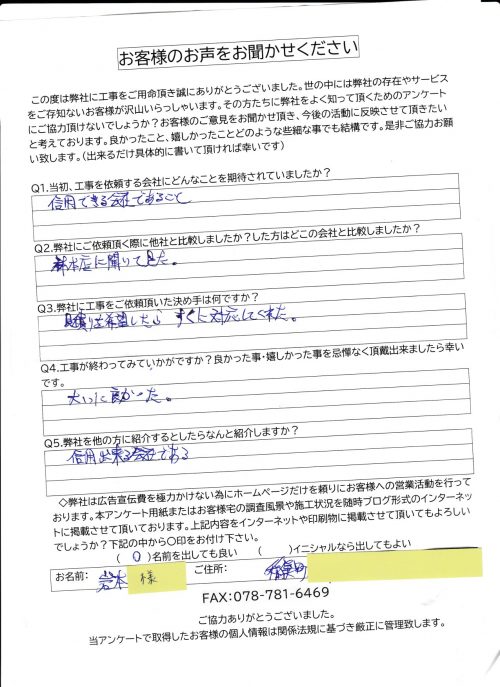 お客様のお声をお聞かせください
この度は弊社に工事をご用命頂き誠にありがとうございました。世の中には弊社の存在やサービス
をご存知ないお客様が沢山いらっしゃいます。その方たちに弊社をよく知って頂くためのアンケート
にご協力頂けないでしょうか？お客様のご意見をお聞かせ頂き、今後の活動に反映させて頂きたい
と考えております。良かったこと、嬉しかったことどのような些細な事でも結構です。是非ご協力お願
い致します。（出来るだけ具体的に書いて頂ければ幸いです）
Q1.当初、工事を依頼する会社にどんなことを期待されていましたか？
信用できる会社であること
Q2.弊社にご依頼頂く際に他社と比較しましたか？した方はどこの会社と比較しましたか？
材木店に聞いて見た。
Q3.弊社に工事をご依頼頂いた決め手は何ですか？
見積りを希望したら すぐに対応してくれた。
Q4.工事が終わってみていかがですか？良かった事・嬉しかった事を忌憚なく頂戴出来ましたら幸い
です。
大いに良かった。
Q5.弊社を他の方に紹介するとしたらなんと紹介しますか？
信用出来る会社である
◇弊社は広告宣伝費を極力かけない為にホームページだけを頼りにお客様への営業活動を行って
おります。本アンケート用紙またはお客様宅の調査風景や施工状況を随時ブログ形式のインターネッ
トに掲載させて頂いております。上記内容をインターネットや印刷物に掲載させて頂いてもよろしい
でしょうか？下記の中から〇印をお付け下さい。
（ 〇 ）名前を出しても良い （ ）イニシャルなら出してもよい
お名前： 岩本 様 ご住所：
FAX：078-781-6469
ご協力ありがとうございました。
当アンケートで取得したお客様の個人情報は関係法規に基づき厳正に管理致します。